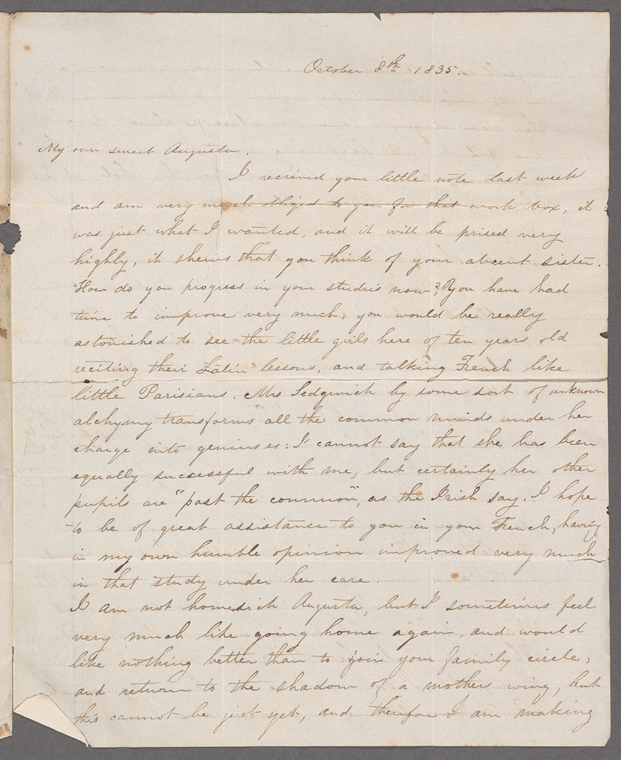 October 8th 1835.
My own sweet Augusta.
I recieved your little note last week
and am very much obliged to you for that work box, it
was just what I wanted, and it will be prised very
highly, it shews that you think of your absent sister.
How do you progress in your studies now? You have had
time to improve very much, you would be really
astonished to see the little girls here of ten years old
reciting their Latin lessons, and talking French like
little Parisians. Mrs Sedgwick by some sort of unknown
alchymy transforms all the common minds under her
charge into geniuses: I cannot say that she has been
equally successful with me, but certainly her other
pupils are "past the common", as the Irish say. I hope
to be of great assistance to you in your French, having
in my own humble opinion improved very much
in that study under her care.
I am not homesick Augusta, but I sometimes feel
very much like going home again, and would
like nothing better than to join your family circle,
and return to the shadow of a mothers wing, but
this cannot be just yet, and therefore I am making